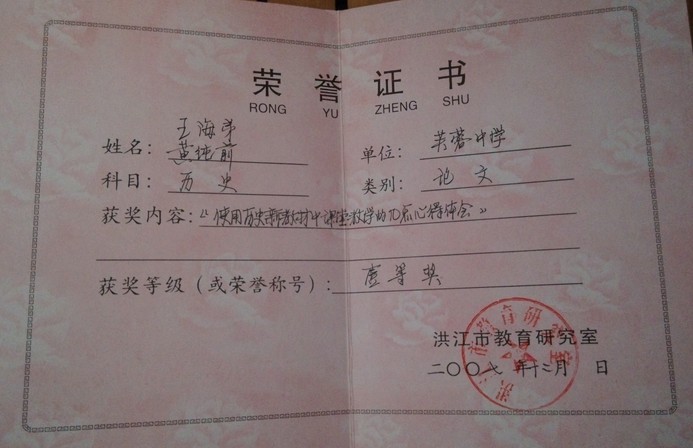 荣誉证书
RONG YU ZHENG SHU
王海弟
姓名：黄纯前 单位：芙蓉中学
科目：历史 类别：论文
获奖内容：《使用历史新教材中课堂教学的几点心得体会》
获奖等级（或荣誉称号）：壹等奖
洪江市教育研究室
二〇〇七年十二月 日